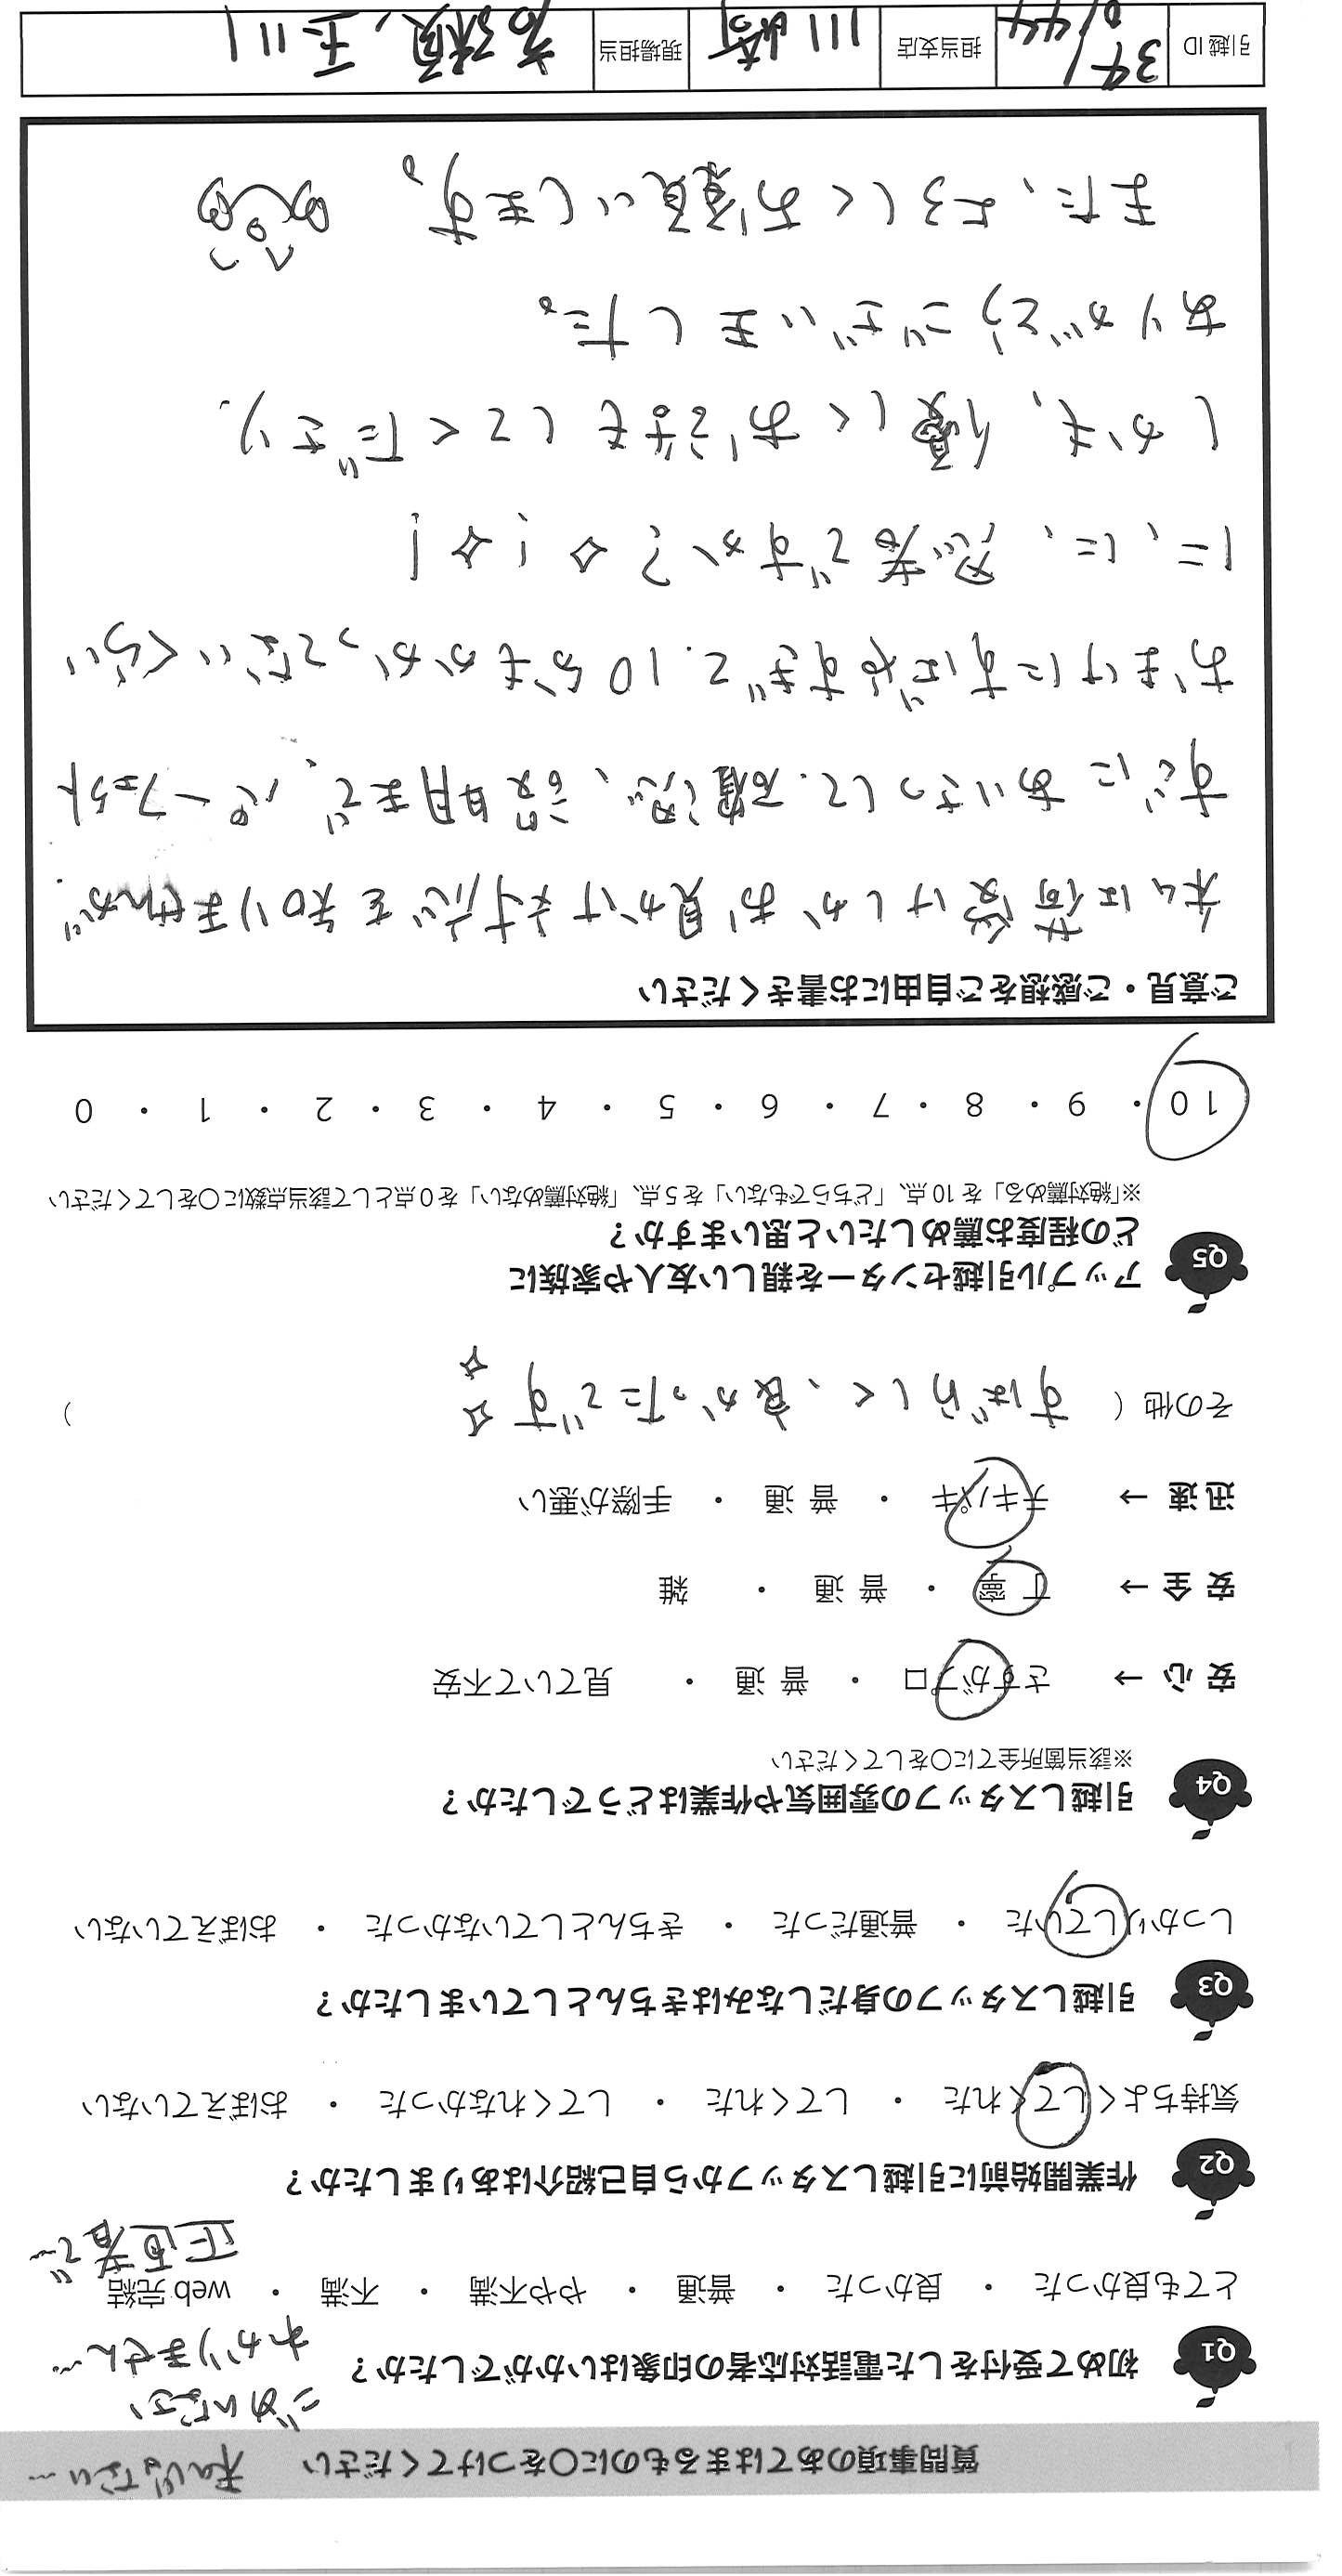 質問事項のあてはまるものに○をつけてください 私じゃない…
ごめんなさい
わかりません…
Q1 初めて受付をした電話対応者の印象はいかがでしたか？
とても良かった ・ 良かった ・ 普通 ・ やや不満 ・ 不満 ・ web完結
正直者で…
Q2 作業開始前に引越しスタッフから自己紹介はありましたか？
気持ちよくしてくれた ・ してくれた ・ してくれなかった ・ おぼえていない
Q3 引越しスタッフの身だしなみはきちんとしていましたか？
しっかりしていた ・ 普通だった ・ きちんとしていなかった ・ おぼえていない
Q4 引越しスタッフの雰囲気や作業はどうでしたか？
※該当箇所全てに○をしてください
安心 → さすがプロ ・ 普通 ・ 見ていて不安
安全 → 丁寧 ・ 普通 ・ 雑
迅速 → テキパキ ・ 普通 ・ 手際が悪い
その他（ すばらしく、良かったです☆☆ ）
Q5 アップル引越センターを親しい友人や家族に
どの程度お薦めしたいと思いますか？
※「絶対薦める」を10点、「どちらでもない」を5点、「絶対薦めない」を0点として該当点数に○をしてください
10 ・ 9 ・ 8 ・ 7 ・ 6 ・ 5 ・ 4 ・ 3 ・ 2 ・ 1 ・ 0
ご意見・ご感想をご自由にお書きください
私は荷受けしかお見かけ対応を知りませんが
すぐにあいさつして.確認、説明まで、パーフェクト
おまけにすばやすぎて.10分もかかってないくらい
に、に、忍者ですか？☆！☆！
しかも、優しくお話もしてくださり.
ありがとうございました。
また、よろしくお願いします。
引越ID 担当支店 川崎 現場担当